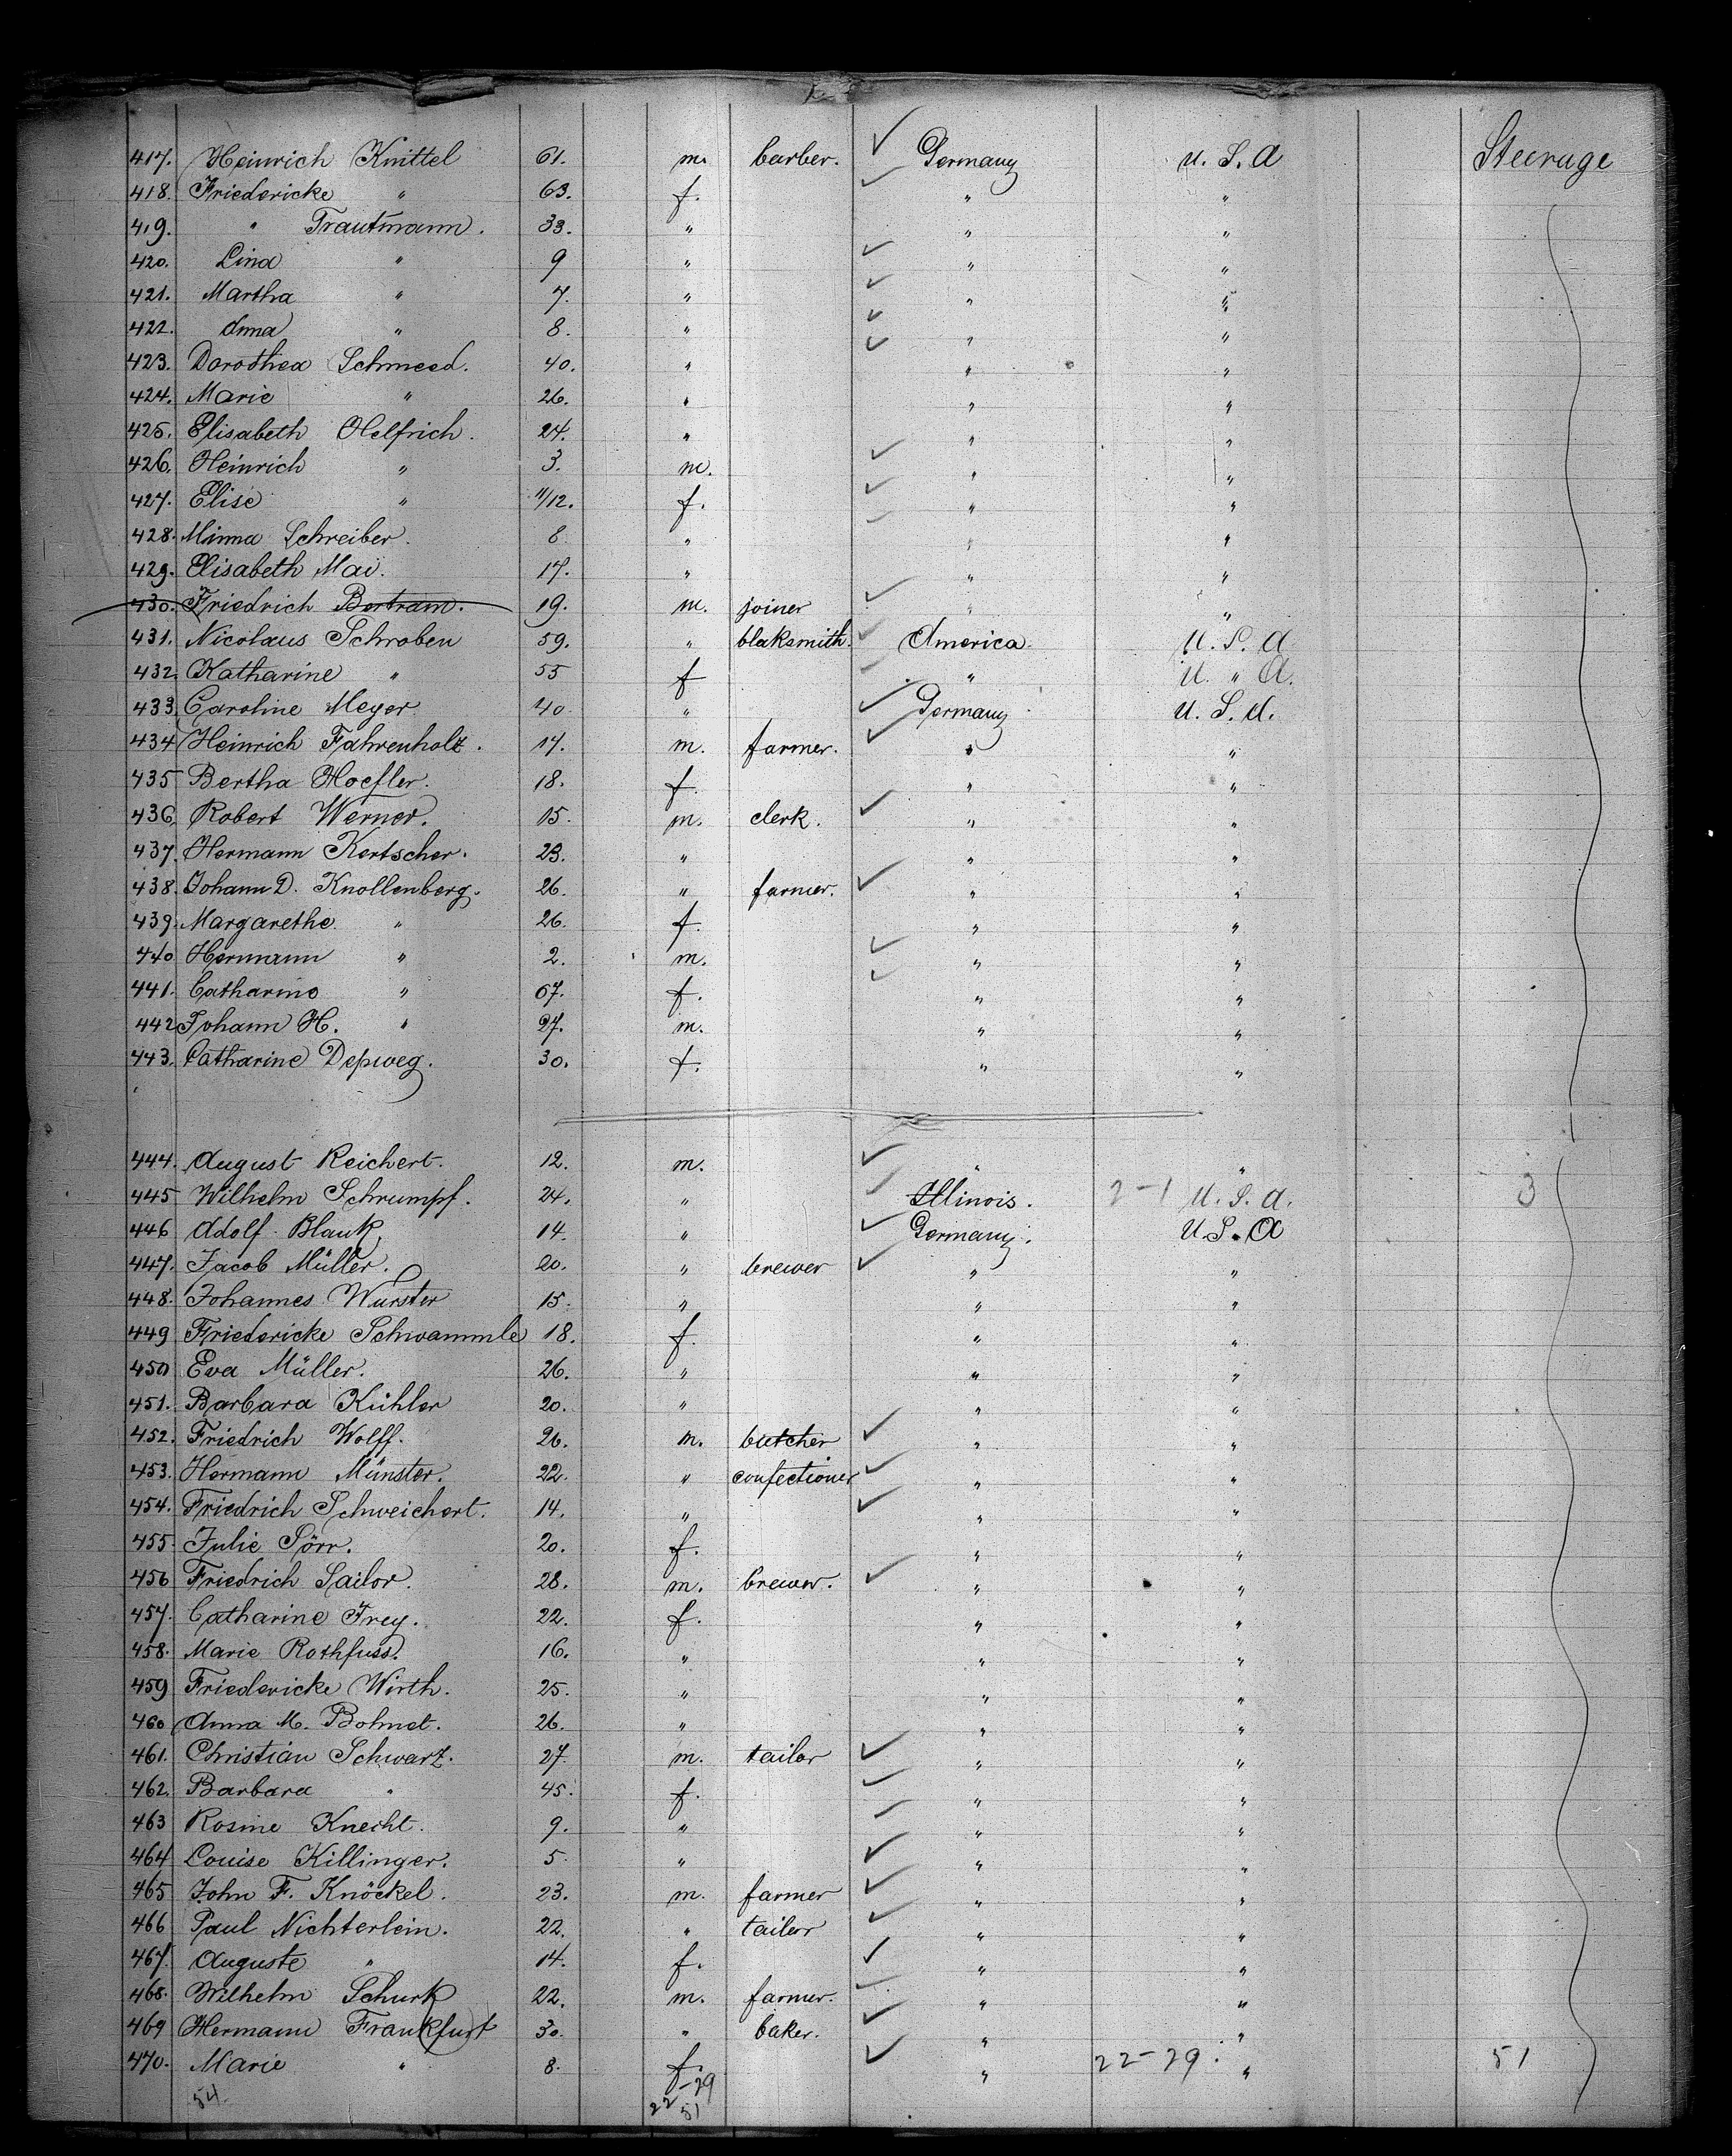 417. Heinrich Knittel 61. m. barber. ✓ Germany U. S. A Steerage
418. Friedericke " 63. f. ✓ " "
419. " Trautmann. 33. " " "
420. Lina " 9 " ✓ " "
421. Martha " 7. " ✓ " "
422. Anna " 8. " ✓ " "
423. Dorothea Schmeed. 40. " ✓ " "
424. Marie " 26. " " "
425. Elisabeth Helfrich. 24. " " "
426. Heinrich " 3. m. ✓ " "
427. Elise " 11/12. f. ✓ " "
428. Minna Schreiber. 8 " ✓ " "
429. Elisabeth Mai. 17. " " "
430. Friedrich Bertram. 19. m. joiner ✓ " "
431. Nicolaus Schroben 59. " blaksmith. ✓ America. U. S. A
432. Katharine " 55 f ✓ " U. " A.
433. Caroline Meyer 40. " ✓ Germany U. S. A.
434 Heinrich Fahrenholz. 17. m. farmer. ✓ " "
435 Bertha Hoefler. 18. f. " "
436. Robert Werner. 15. m. clerk. ✓ " "
437. Hermann Kertscher. 23. " " "
438. Johann D. Knollenberg. 26. " farmer. ✓ " "
439. Margarethe. " 26. f. " "
440 Hermann " 2. m. ✓ " "
441. Catharine " 67. f. ✓ " "
442 Johann H. " 27. m. " "
443. Catharine Depweg. 30. f. " "
444. August Reichert. 12. m. ✓ " "
445 Wilhelm Schrumpf. 24. " ✓ Illinois. 2-1 U. S. A. 3
446 Adolf Blank 14. " ✓ Germany. U. S. A
447. Jacob Müller. 20. " brewer ✓ " "
448. Johannes Wurster 15. " " "
449 Friedericke Schwammle 18. f. " "
450 Eva Müller. 26. " " "
451. Barbara Kühler 20. " " "
452. Friedrich Wolff. 26. m. butcher ✓ " "
453. Hermann Münster. 22. " confectioner ✓ " "
454. Friedrich Schweichert. 14. " ✓ " "
455. Julie Sörr. 20. f. " "
456 Friedrich Sailor. 28. m. brewer. ✓ " "
457. Catharine Frey. 22. f. " "
458. Marie Rothfuss. 16. " " "
459 Friedericke Wirth. 25. " " "
460 Anna M. Bohnet. 26. " " "
461. Christian Schwarz. 27. m. tailor ✓ " "
462. Barbara " 45. f. ✓ " "
463 Rosine Knecht. 9. " ✓ " "
464 Louise Killinger. 5. " ✓ " "
465 John F. Knöckel. 23. m. farmer ✓ " "
466 Paul Nichterlein. 22. " tailor ✓ " "
467. Auguste " 14. f. ✓ " "
468. Wilhelm Schurk 22. m. farmer. ✓ " "
469 Hermann Frankfurt 30. " baker. ✓ " "
470. Marie " 8. f. ✓ " 22-29. " 51
54. 22-29
51